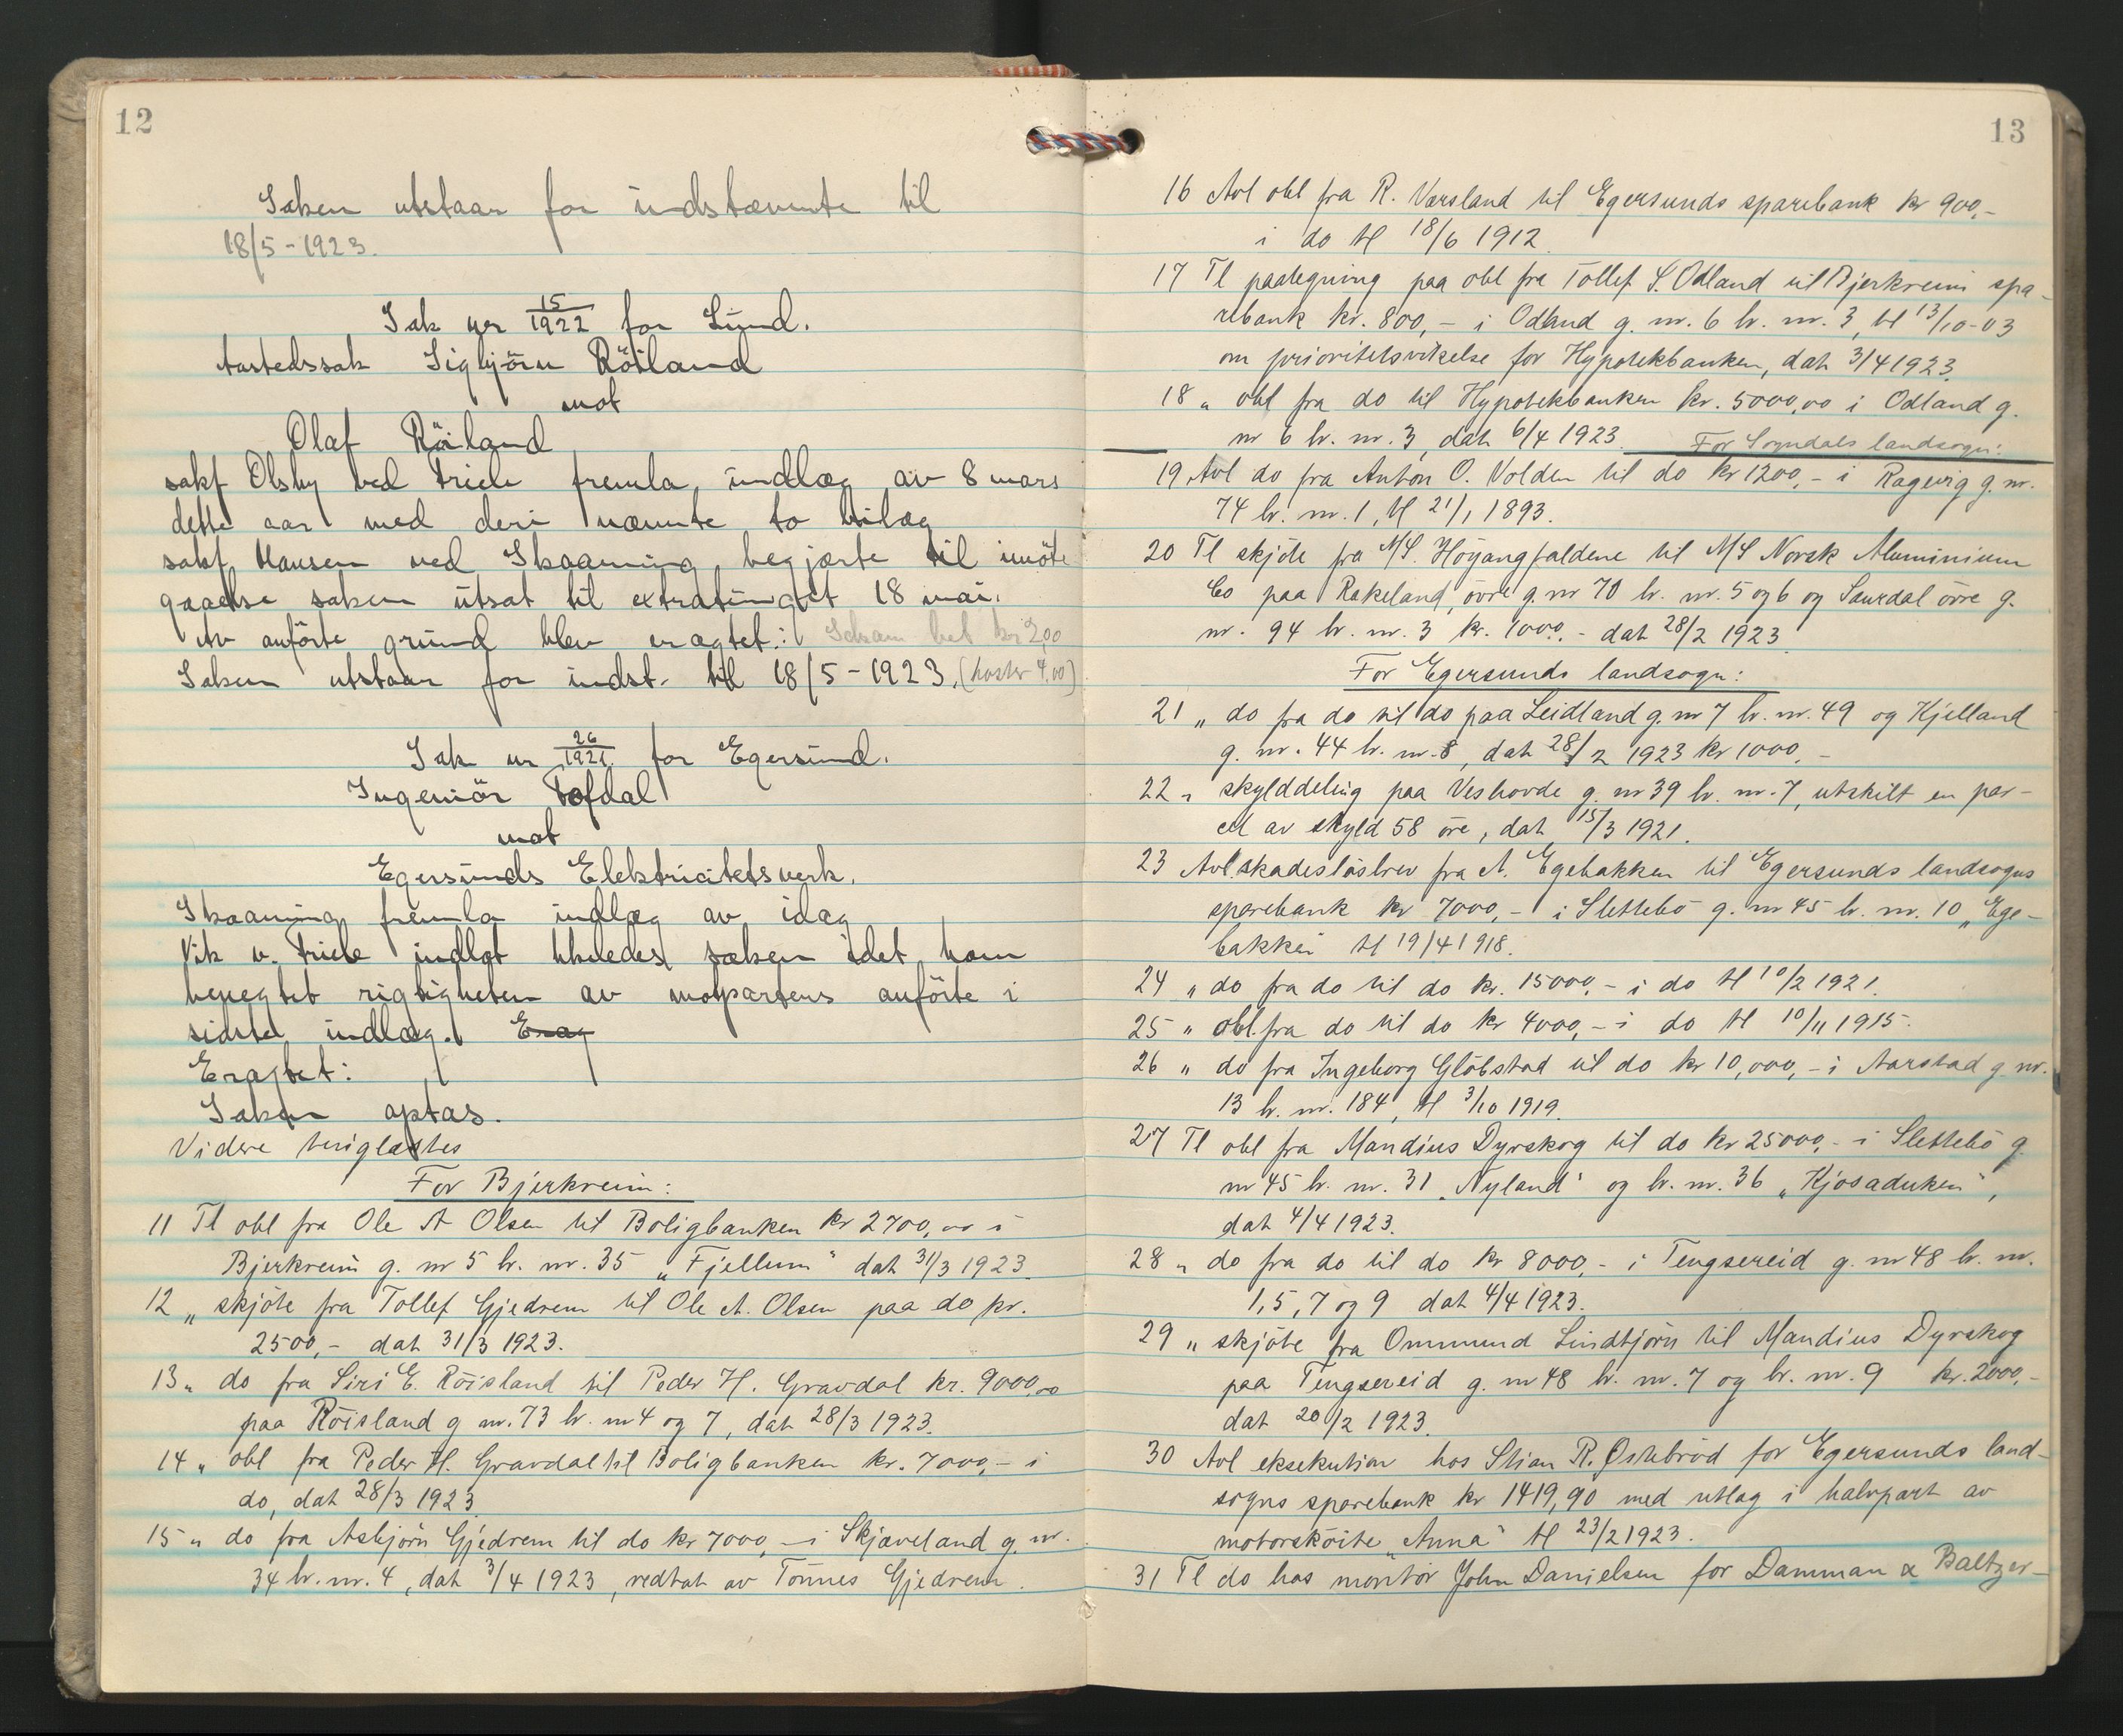 12
Saken utstaar for indstævnte til
18/5-1923.
Sak nr 15/1922 for Lund.
Aastedssak Sigbjörn Röiland
mot
Olaf Röiland
sakf Olsby ved Friele fremla indlæg av 8 mars
dette aar med deri nævnte to bilæg
sakf Hansen ved Skaaning begjærte til imöte
gaaelse saken utsat til extratinget 18 mai.
Av anförte grund blev eragtet: bet kr 2,00
Saken utstaar for indst. til 18/5-1923. (koster 4,00)
Sak nr 26/1921 for Egersund.
Ingeniör Tofdal
mot
Egersunds Elektricitetsverk.
Skaaning fremla indlæg av idag
Vik v. Friele indlot likeledes saken idet han
benegtet rigtigheten av motpartens anförte i
sidste indlæg. Erag
Eragtet:
Saken optas.
Videre tinglæstes
For Bjerkreim:
11 Tl obl fra Ole A Olsen til Boligbanken kr 2700,00 i
Bjerkreim g. nr 5 br. nr. 35 „Fjellum“ dat 31/3 1923.
12 „ skjöte fra Tollef Gjedrem til Ole A. Olsen paa do kr.
2500,- dat 31/3 1923.
13 „ do fra Siri E. Röisland til Peder H. Gravdal kr. 9000,00
paa Röisland g nr. 73 br. nr 4 og 7, dat 28/3 1923.
14 „ obl fra Peder H. Gravdal til Boligbanken kr. 7000,- i
do, dat 28/3 1923
15 „ do fra Asbjörn Gjedrem til do kr 7000,- i Skjæveland g. nr.
34 br. nr. 4, dat 3/4 1923, vedtat av Tönnes Gjedrem.
13
16 Avl obl fra R. Versland til Egersunds sparebank kr 900,-
i do tl 18/6 1912.
17 Tl paategning paa obl fra Tollef S. Odland til Bjerkreim spa-
rebank kr. 800,- i Odland g. nr. 6 br. nr. 3, tl 13/10-03
om prioritetsvikelse for Hypotekbanken, dat 3/4 1923.
18 „ obl fra do til Hypotekbanken kr. 5000,00 i Odland g.
nr 6 br. nr. 3, dat 6/4 1923. For Sogndals landsogn:
19 Avl do fra Anton O. Volden til do kr 1200,- i Rægevig g. nr.
74 br. nr. 1, tl 21/1 1893.
20 Tl skjöte fra A/S. Höyangfaldene til A/S Norsk Aluminium
Co paa Rakeland, övre g. nr 70 br. nr. 5 og 6 og Saurdal övre g.
nr. 94 br. nr. 3 kr. 1000,- dat 28/2 1923.
For Egersunds landsogn:
21 „ do fra do til do paa Leidland g. nr 7 br. nr. 49 og Kjelland
g. nr. 44 br. nr. 8, dat 28/2 1923 kr 1000,-
22 „ skylddeling paa Veshovde g. nr 39 br. nr. 7, utskilt en par-
cel av skyld 58 öre, dat 15/3 1921.
23 Avl. skadeslösbrev fra A. Egebakken til Egersunds landsogns
sparebank kr 7000,- i Slettebö g. nr 45 br. nr. 10 „Ege-
bakken tl 19/4 1918.
24 „ do fra do til do kr. 15000,- i do tl 10/2 1921.
25 „ obl. fra do til do kr 4000,- i do tl 10/11 1915.
26 „ do fra Ingeborg Glöbstad til do kr 10,000,- i Aarstad g nr.
13 br. nr. 184, tl 3/10 1919.
27 Tl obl fra Mandius Dyrskog til do kr 25000,- i Slettebö g.
nr 45 br. nr. 31 „Nyland“ og br. nr. 36 „Kjosaduken“,
dat 4/4 1923.
28 „ do fra do til do kr 8000,- i Tengsereid g. nr 48 br. nr.
1, 5, 7 og 9 dat 4/4 1923.
29 „ skjöte fra Ommund Lindtjörn til Mandius Dyrskog
paa Tengsereid g. nr 48 br. nr. 7 og br. nr. 9 kr. 2000,-
dat 20/2 1923.
30 Avl eksekution hos Stian R. Østebröd for Egersunds land-
sogns sparebank kr 1419,90 med utlæg i halvpart av
motorsköite „Anna“ tl 23/2 1923.
31 Tl do hos montör John Danielsen for Damman & Baltzer-